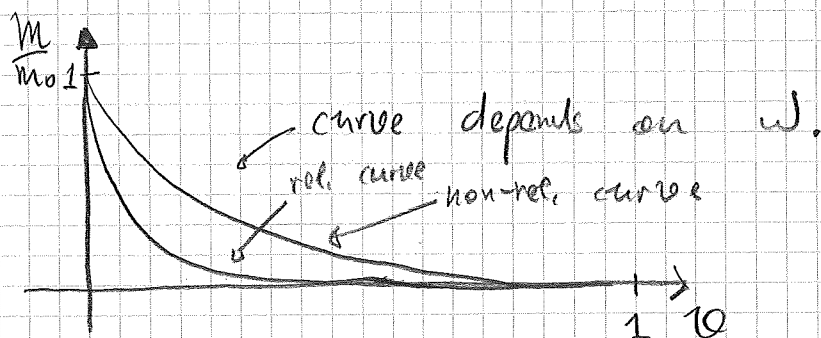 m
m₀ 1
curve depends on w.
rel. curve
non-rel. curves
1 v